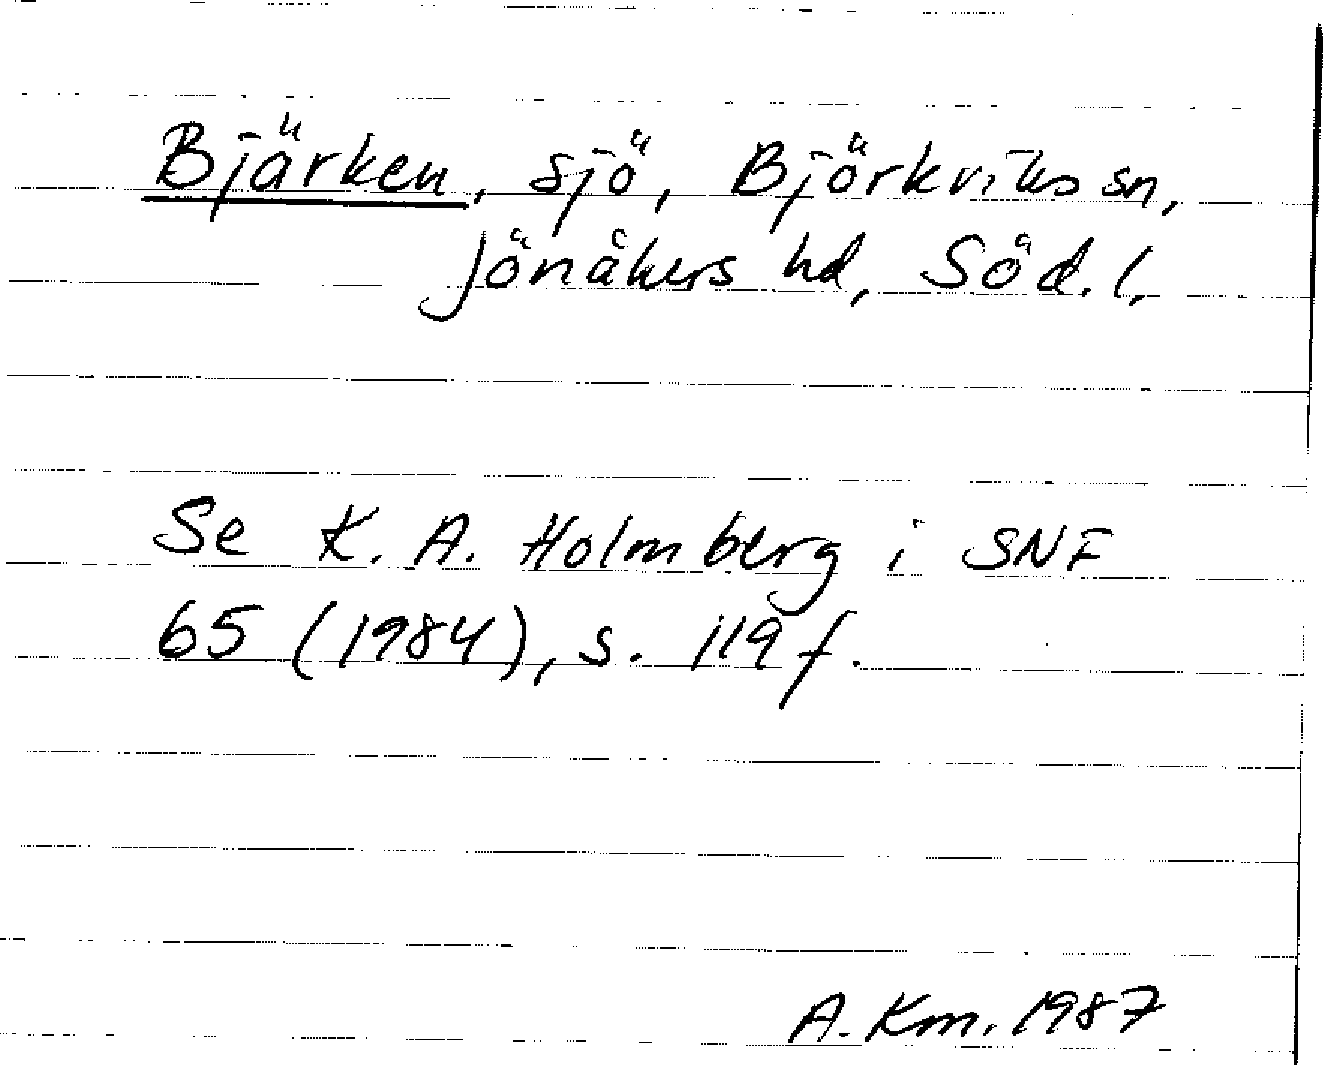 Bjärken, sjö, Björkviks sn,
Jönåkers hd, Söd. l.
Se K. A. Holmberg i SNF
65 (1984), s. 119 f.
A. Km. 1987